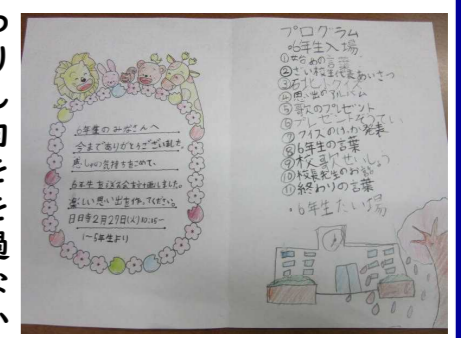 わ
り
し
句
を
を
過
な
か
6年生のみなさんへ
今までありがとうございました。
感しゃの気持ちをこめて、
6年生を送る会を計画しました。
楽しい思い出を作ってください。
日日寺2月27日(火)10:15〜
1〜5年生より
プログラム
・6年生入場
①始めの言葉
②ざい校生代表あいさつ
③石北クイズ
④思い出のアルバム
⑤歌のプレゼント
⑥プレゼント
⑦フイスのけっか発表
⑧6年生の言葉
⑨校歌せいしょう
⑩校長先生のお話
⑪終わりの言葉
・6年生たい場